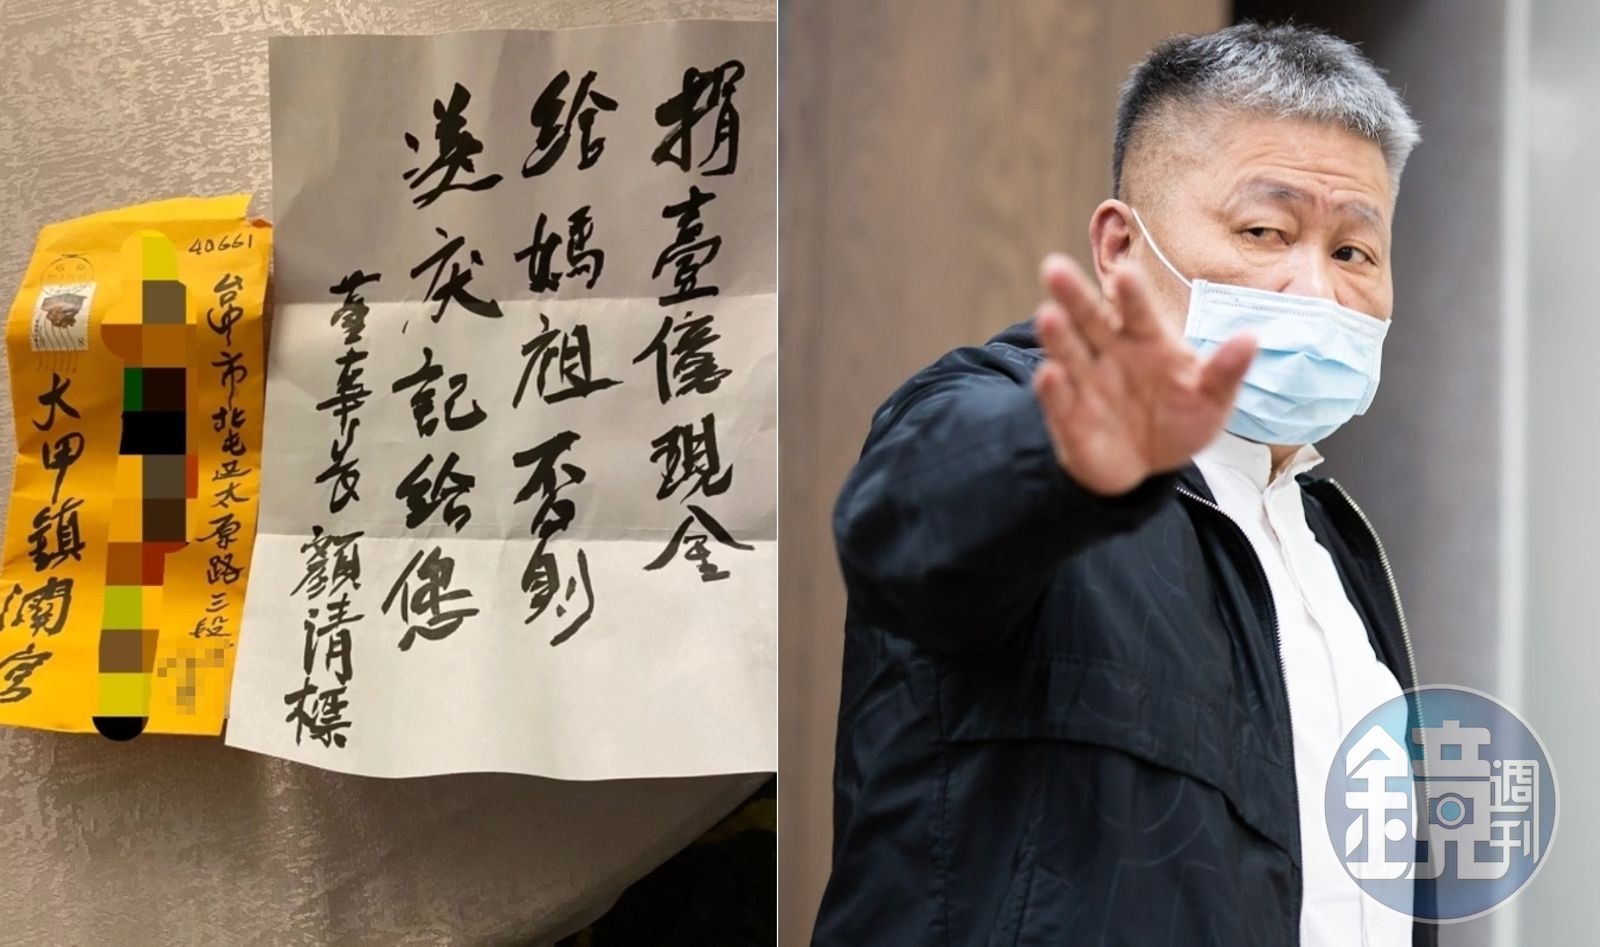 捐壹億現金
給媽祖否則
記給您
董事長 顏清標
40661
台中市北屯区太原路三段
大甲鎮瀾宮
鏡週刊